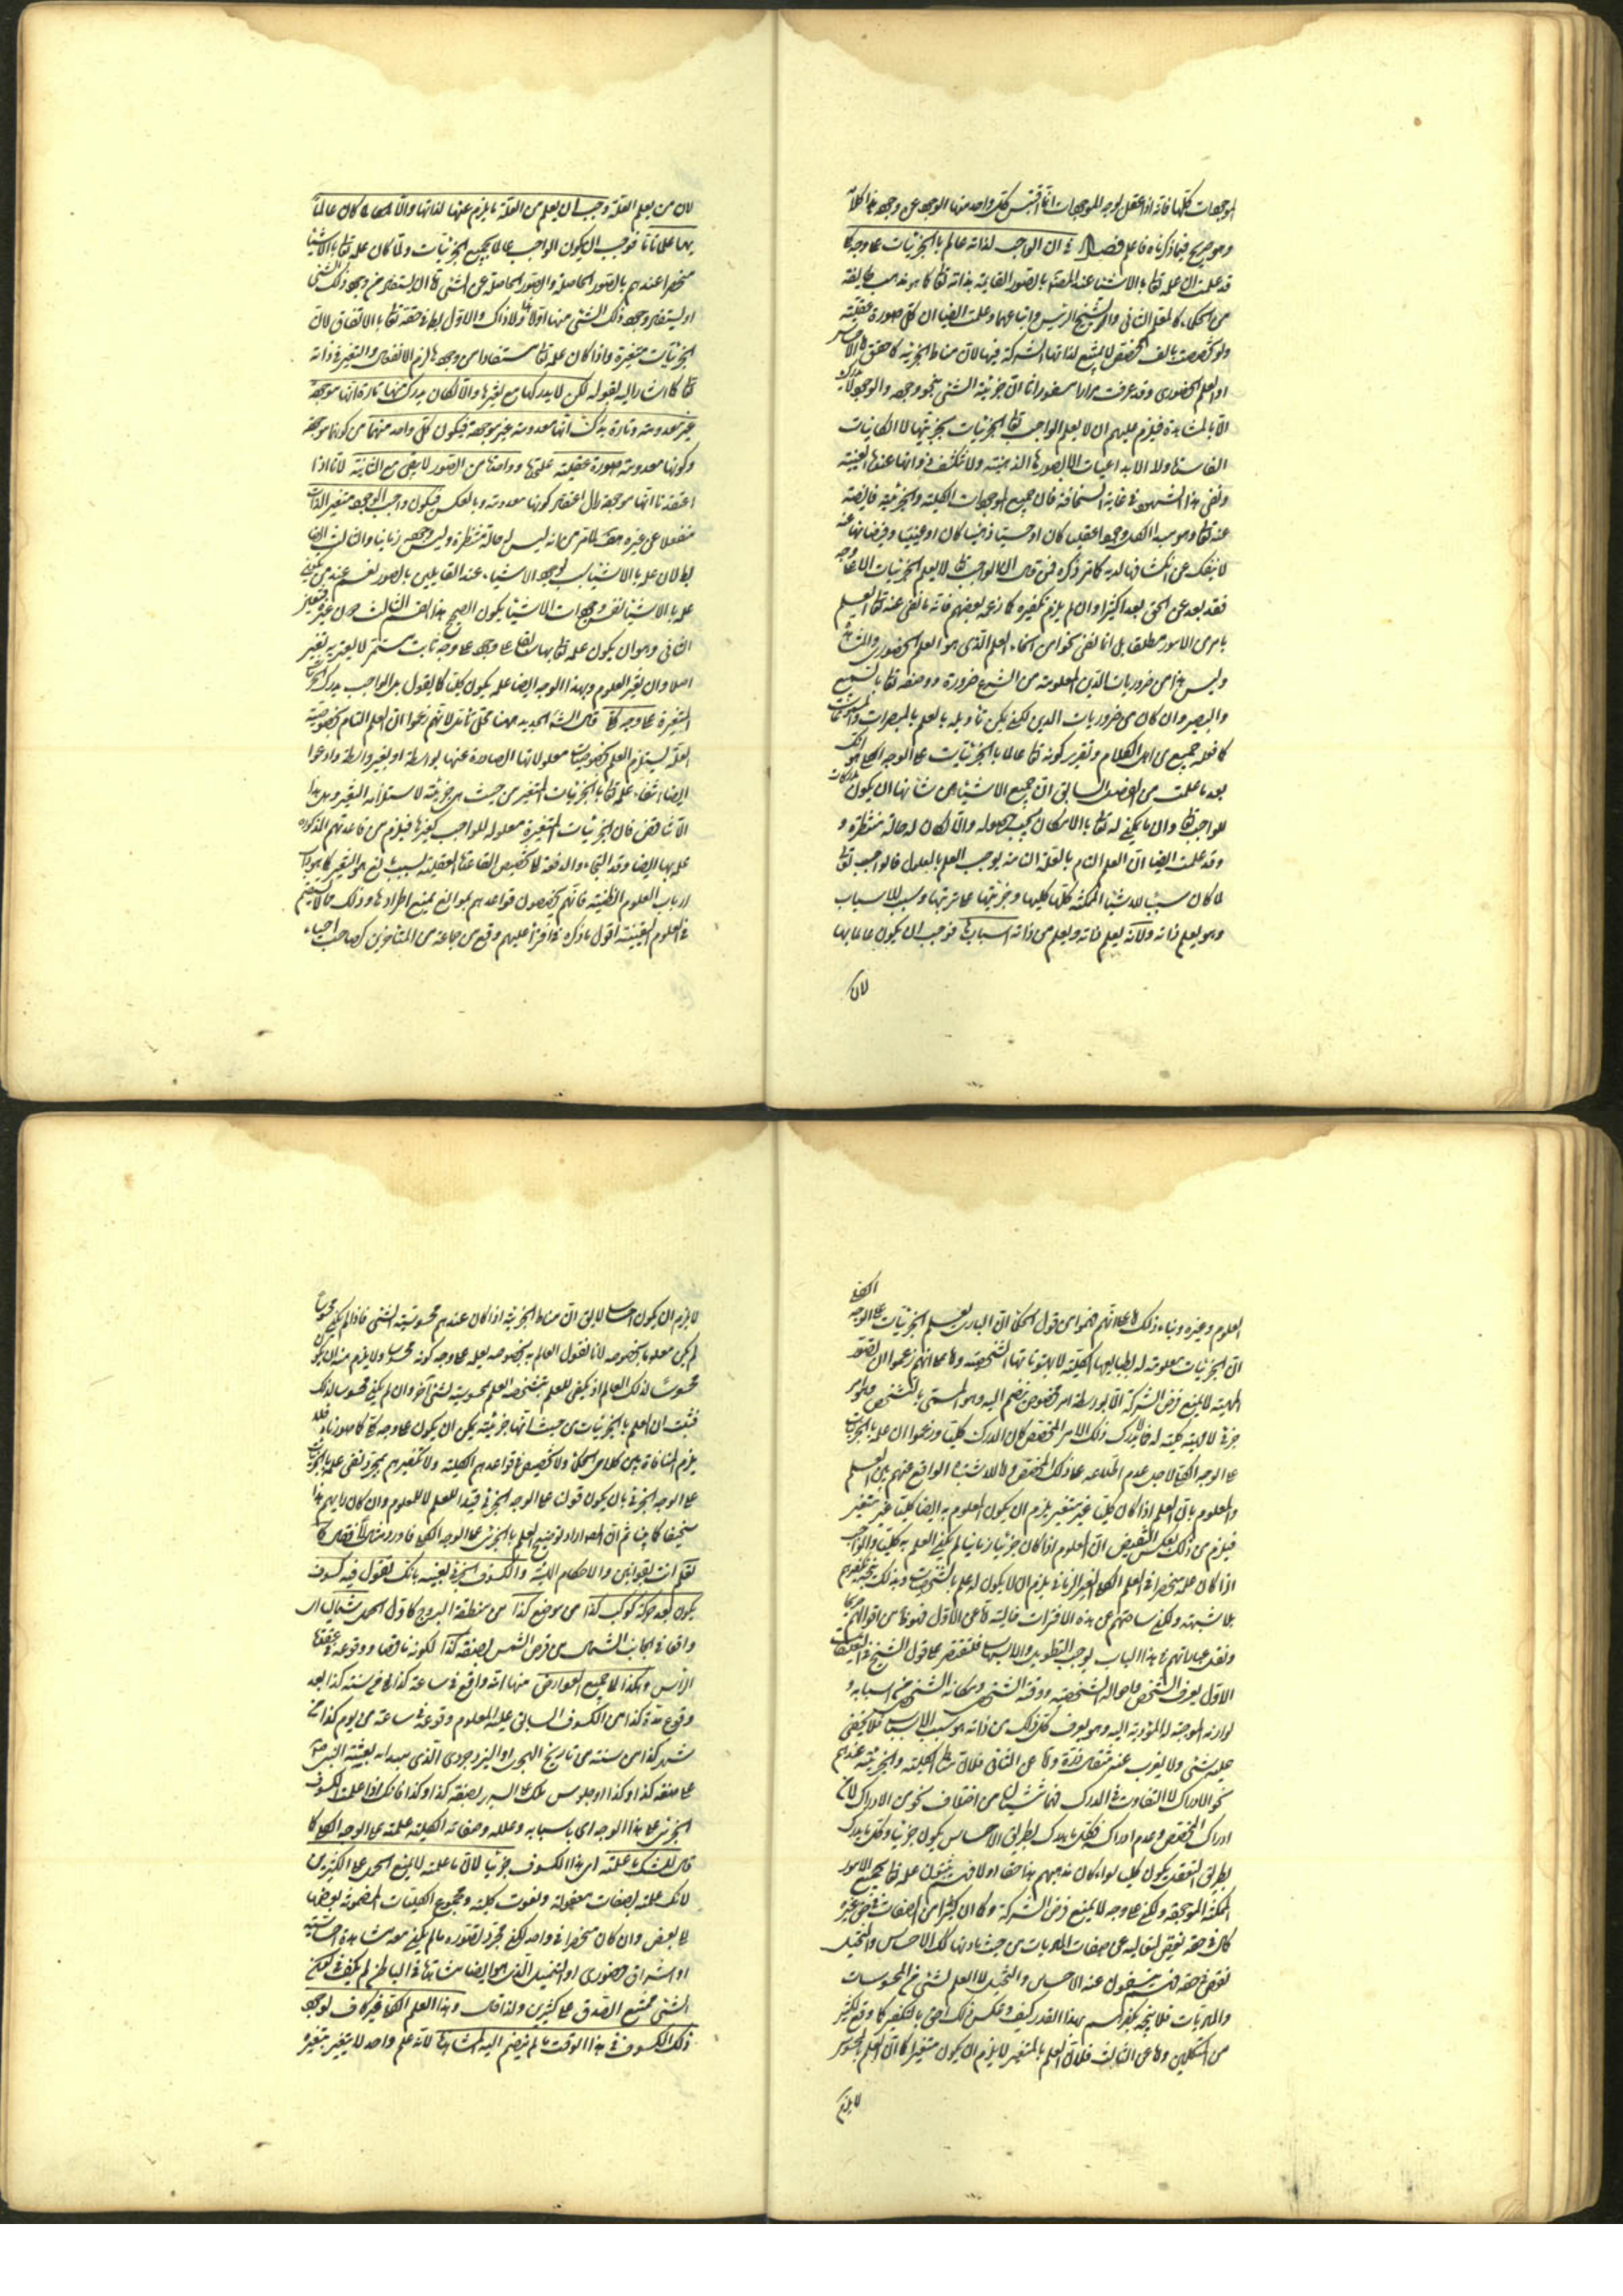 الموجودات كلها فانه اذا عقل لوجه الموجودات انما اقتبس كل واحد منها الوجود عن وجوده هذا كلامه
وهو صريح فيما ذكرناه فاعلم فصل في ان الواجب لذاته عالم بالجزئيات على وجه كلي
قد علمت ان علمه تعالى بالاشياء عند المصنف بالصور القايمة بذاته تعالى كما هو مذهب طايفة
من الحكماء كالمعلم الثاني والشيخ الرئيس واتباعهما وعلمت ايضا ان كل صورة عقلية
ولو تخصصت بالف تخصص لا يمتنع لذاتها الشركة فيها لان مناط الجزئية كما حقق الاحساس
او العلم الحضوري وقد عرفت مرارا من سفورانا ان جزئية الشئ بنحو وجوده والوجود لا يدرك
الا بالمشاهدة فيلزم عليهم ان لا يعلم الواجب تعالى الجزئيات بجزئيتها لا الكائنات
الفاسدة ولا الابداعيات الا بالصور الذهنية ولا تنكشف ذواتها عنده العينية
ونفي هذا الشهود في غاية السخافة فان جميع الموجودات الكلية والجزئية فايضة
عنه تعالى وهو مبدا لكل وجود عقليا كان او حسيا ذهنيا كان او عينيا وفيضانها عنه
لا ينفك عن انكشافها لديه كما مر ذكره فمن قال ان الواجب تعالى لا يعلم الجزئيات الا على وجه كلي
فقد بعد عن الحق بعدا كثيرا وان لم يلزم تكفيره كما زعمه بعضهم فانه ما نفى عنه تعالى العلم
بامر من الامور مطلقا بل انما نفى نحوا من انحاء العلم الذي هو العلم الحضوري والمشاهدة
وليس هذا من ضروريات الدين المعلومة من الشرع ضرورة ووصفه تعالى بالسميع
والبصير وان كان من ضروريات الدين لكن يمكن تأويله بالعلم بالمبصرات والمسموعات
كما فعله جميع من اهل الكلام وتقرير كونه تعالى عالما بالجزئيات على الوجه الكلي هو انك
بعد ما علمت من الفصل السابق ان جميع الاشياء من شانها ان يكون مدركات
للواجب تعالى وان ما يمكن له تعالى بالامكان يجب حصوله والا لكان له حالة منتظرة و
وقد علمت ايضا ان العلم التام بالعلة التامة يوجب العلم بالمعلول فالواجب تعالى
لما كان سببا للاشياء الممكنة كلها كليها وجزئيتها على ترتيبها وسبب الاسباب
وهو يعلم ذاته ولانه يعلم ذاته ويعلم من ذاته اسبابها فوجب ان يكون عالما بها
لان
لان من يعلم العلة وجب ان يعلم من العلة ما يلزم عنها لذاتها والا لما كان عالما
بها علما تاما فوجب ان يكون الواجب عالما بجميع الجزئيات ولما كان علمه تعالى بالاشياء
منحصرا عندهم بالصور الحاصلة والصور الحاصلة عن الشئ اما ان يستفاد من وجود ذلك الشئ
او يستفاد وجود ذلك الشئ منها اولا هذا ولا ذاك والاول باطل في حقه تعالى بالاتفاق لان
الجزئيات متغيرة واذا كان علمه تعالى مستفادا من وجودها لزم الانفعال والتغير في ذاته
تعالى كما اشار اليه بقوله لكن لا يدركها مع تغيرها والا لكان يدرك منها تارة انها موجودة
غير معدومة وتارة يدرك انها معدومة غير موجودة فيكون لكل واحد منهما من كونها موجودة
وكونها معدومة صورة عقلية على حدة وواحدة من الصور لا يبقى مع الثانية لانا اذا
اعتقدنا انها موجودة زال اعتقاد كونها معدومة وبالعكس فيكون واجب الوجود متغير الذات
منفعلا عن غيره هف لما مر من انه ليس له حالة منتظرة وليس وجوده زمانيا والثالث ايضا
لبطلان علمه بالاشياء سبب لوجود الاشياء عند القايلين بالصور نعم عند من يكون
علمه بالاشياء نفس وجودات الاشياء يكون الصحيح هذا القسم الثالث دون غيره فتعين
الثاني وهو ان يكون علمه تعالى بها سابقا على وجودها على وجه ثابت مستمر لا يعتريه تغير
اصلا وان تغير المعلوم وبهذا الوجه ايضا علمه يكون كليا كما يقول بل الواجب يدرك الجزئيات
المتغيرة على وجه كلي قال الشارح الجديد ههنا محل تأمل لانهم زعموا ان العلم التام بخصوصية
العلة يستلزم العلم بخصوصيات معلولاتها الصادرة عنها بواسطة او بغير واسطة وادعوا
ايضا انتفاء علمه تعالى بالجزئيات المتغيرة من حيث هي جزئية لاستلزامه التغير وهل هذا
الا تناقض فان الجزئيات المتغيرة معلولة للواجب كغيرها فيلزم من قاعدتهم المذكورة
علمه بها ايضا وقد التجاء في دفعه الى تخصيص القاعدة العقلية بسبب مانع هو التغير كما هو داب
ارباب العلوم الظنية فانهم يخصصون قواعدهم بموانع تمنع اطرادها وذلك مما لا يستقيم
في العلوم اليقينية اقول ما ذكره افتراء عليهم وقع من جماعة من المتأخرين كصاحب احياء
العلوم وغيره وبناء ذلك اما على انهم فهموا من قول الحكماء ان الباري يعلم الجزئيات على الوجه الكلي
ان الجزئيات معلومة له بطبايعها الكلية لا بهوياتها الشخصية واما على انهم زعموا ان تصور
الماهية لا يمنع فرض الشركة الا بواسطة امر مخصوص ينضم اليه وهو المسمى بالتشخص وهو امر
جزئي لا ماهية كلية له فما لا يدرك ذلك الامر المخصص كان المدرك كليا وزعموا ان علمه بالجزئيات
على الوجه الكلي لاجل عدم اطلاعه على ذلك المخصص واما للاشتباه الواقع عنهم بين العلم
والمعلوم بان العلم اذا كان كليا غير متغير يلزم ان يكون المعلوم به ايضا كليا غير متغير
فيلزم من ذلك بعكس النقيض ان المعلوم اذا كان جزئيا زمانيا لم يكن العلم به كليا والواجب
اذا كان علمه منحصرا في العلم الكلي الغير الزماني يلزم ان لا يكون له علم بالشخصيات وبذلك يتجه تكفيرهم
بلا شبهة ولكن ساحتهم عن هذه الافتراءات خالية اما عن الاول فنحوها من اقوالهم
ونقل عباراتهم في هذا الباب يوجب التطويل والاسهاب فلنقتصر على قول الشيخ في التعليقات
الاول يعرف الشخص واحواله الشخصية ووقته الشخصي ومكانه الشخصي من اسبابه و
لوازمه الموجبة له المؤدية اليه وهو يعرف كل ذلك من ذاته هو سبب الاسباب فلا يخفى
عليه شئ ولا يعزب عنه مثقال ذرة واما عن الثاني فلان مناط الكلية والجزئية عندهم
نحو الادراك لا التفاوت في المدرك فهما ناشئتان من اختلاف نحوي الادراك لا من
ادراك المخصص وعدم ادراكه فكل ما يدرك بطريق الاحساس يكون جزئيا وكل ما يدرك
بطريق التعقل يكون كليا سواء كان مذهبهم هذا حقا او لا فهم يثبتون علمه تعالى بجميع الامور
الممكنة الموجودة ولكن على وجه لا يمنع فرض الشركة وكما ان كثيرا من الصفات في حق غيره
كمال وفي حقه نقص لتعاليه عن صفات الماديات من حيث ماديتها كذلك الاحساس والتخيل
نقص في حقه فهم ينفون عنه الاحساس والتخيل لا العلم بشئ من المحسوسات
والماديات فلا يتجه تكفيرهم بهذا القدر كيف وعكس ذلك احق بالتكفير كما وقع لكثير
من المتكلمين واما عن الثالث فلان العلم بالمتغير لا يلزم ان يكون متغيرا كما ان العلم بالمحسوس
لا يلزم
لا يلزم ان يكون احساسا لا يقال ان مناط الجزئية اذا كان عندهم محسوسية الشئ فاذا لم يكن محسوسا
لم يكن معلوما بخصوصه لانا نقول العالم به بخصوصه يعلمه على وجه كونه محسوسا ولا يلزم منه ان يكون
محسوسا لذلك العالم اذ يكفي للعلم بتشخصه العلم بمحسوسيته لشئ آخر وان لم يكن محسوسا لذلك
فثبت ان العلم بالجزئيات من حيث انها جزئية يمكن ان يكون على وجه كلي كما صورناه فلا
يلزم المنافاة بين كلامي الحكماء ولا تخصيص في قواعدهم الكلية ولا تكفيرهم بمجرد نفي علمه بالجزئيات
على الوجه الجزئي بان يكون قولنا على الوجه الجزئي قيدا للعلم لا للمعلوم وان كان رايهم هذا
سخيفا كما بينا ثم ان المصنف اراد توضيح العلم بالجزئي على الوجه الكلي فاورد مثالا فقال كما
تعلم انت بقوانين والاحكام الكلية والكسوف الجزئي بعينه بانك تقول فيه كسوف
يكون بعد حركة كوكب كذا من موضع كذا من منطقة البروج كاول الحمل شماليا
واقعا في الجانب الشمالي من قرص الشمس بصفة كذا لكونه ناقصا ووقوعه في عقدة
الراس وهكذا الى جميع العوارض منها انه واقع في ساعة كذا او في سنة كذا بعد
وقوع مدة كذا من الكسوف السابق عليه المعلوم وقوعه في ساعة من يوم كذا من
شهر كذا من سنة من تاريخ الهجري او اليزدجردي الذي مبداه بعثة النبي
على صفة كذا وكذا او جلوس ملك على السرير بصفة كذا وكذا فانك اذا علمت الكسوف
الجزئي على هذا الوجه اي باسبابه وعلله وصفاته الكلية علمته على الوجه الكلي كما
قال لكنك ما علمته اي هذا الكسوف جزئيا لان ما علمته لا يمنع الحمل على الكثيرين
لانك علمته بصفات معقولة ونعوت كلية ومجموع الكليات المضمومة بعضها
الى بعض وان كان منحصرا في واحد لكن مجرد تصوره ما لم يكن معه مشاهدة احساسية
او اشراق حضوري او التخييل الذي هو ايضا مشاهدة في الباطن لم يكف في كون
الشئ ممتنع الصدق على كثيرين ولذا قال وهذا العلم الكلي غير كاف لوجود
ذلك الكسوف في هذا الوقت ما لم ينضم اليه المشاهدة لانه علم واحد لا يتغير بتغير